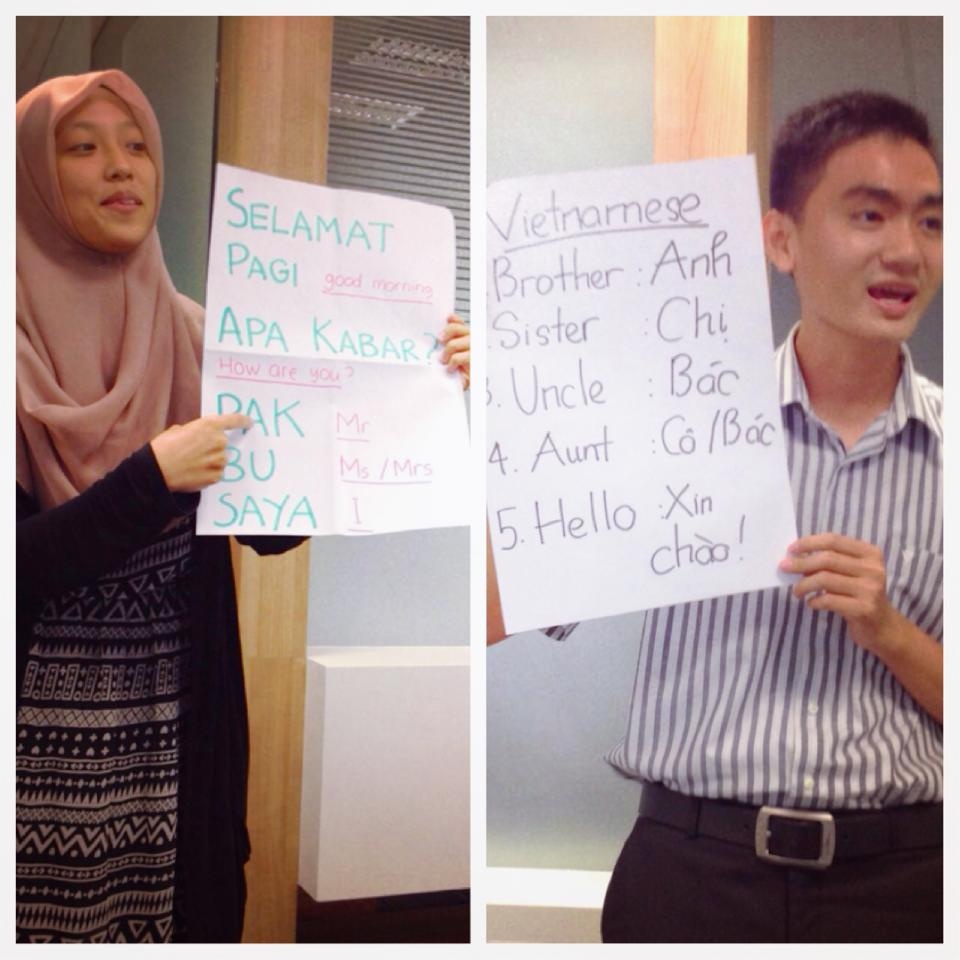 SELAMAT
PAGI good morning
APA KABAR?
How are you?
PAK Mr
BU Ms/Mrs
SAYA I
Vietnamese
Brother : Anh
Sister : Chị
3. Uncle : Bác
4. Aunt : Cô/Bác
5. Hello : Xin
chào!